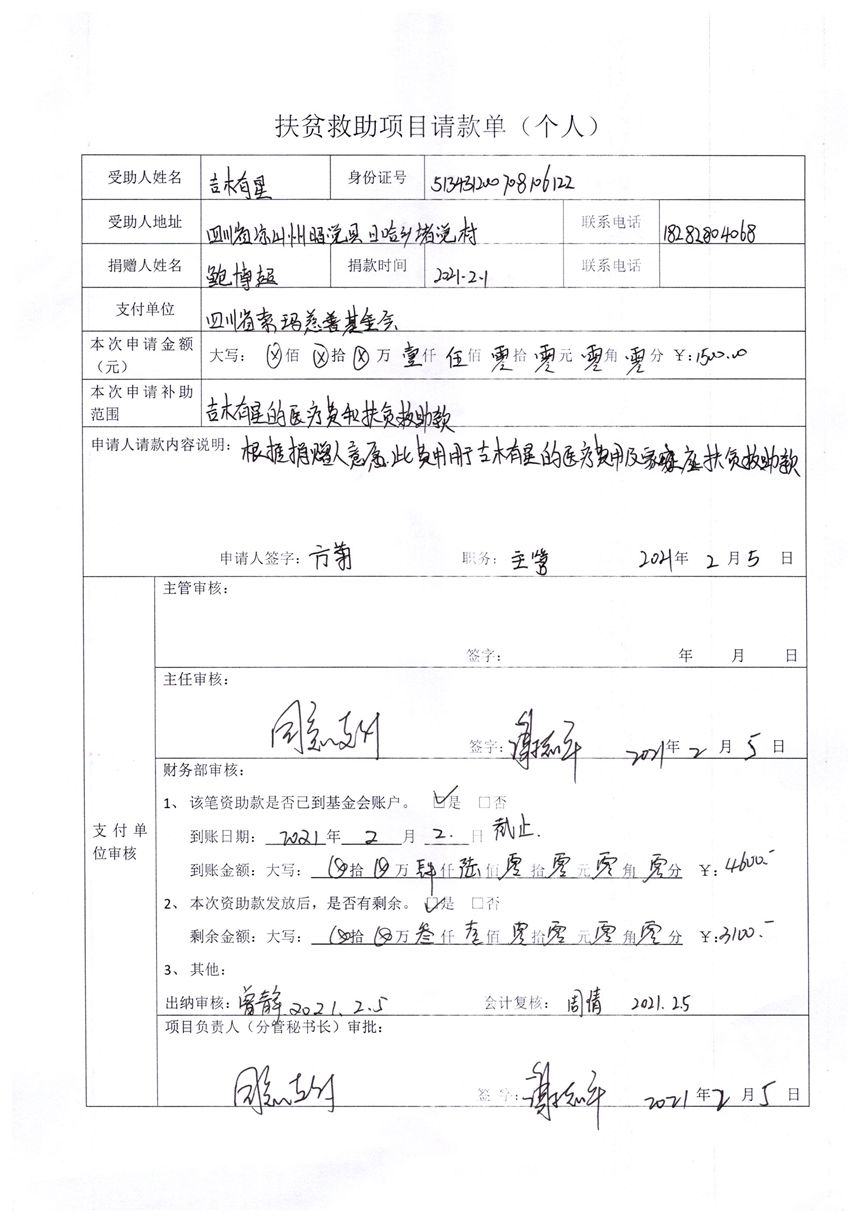 扶贫救助项目请款单（个人）
受助人姓名 吉木有星 身份证号 513431200708106122
受助人地址 四川省凉山州昭觉县日哈乡堵觉村 联系电话 18282804068
捐赠人姓名 鲍博超 捐款时间 2021.2.1 联系电话
支付单位 四川省索玛慈善基金会
本次申请金额（元） 大写：⊗佰⊗拾⊗万壹仟伍佰零拾零元零角零分 ￥:1500.00
本次申请补助范围 吉木有星的医疗费和扶贫救助款
申请人请款内容说明：根据捐赠人意愿.此费用用于吉木有星的医疗费用及家庭扶贫救助款
申请人签字：方菊 职务：主管 2021年2月5日
支付单位审核
主管审核：
签字： 年 月 日
主任审核：
同意支付 签字： 2021年2月5日
财务部审核：
1、 该笔资助款是否已到基金会账户。 ☑是 □否
到账日期：2021年2月2.日 截止.
到账金额：大写：⊗拾⊗万肆仟陆佰零拾零元零角零分 ￥:4600.-
2、 本次资助款发放后，是否有剩余。☑是 □否
剩余金额：大写：⊗拾⊗万叁仟壹佰零拾零元零角零分 ￥:3100.-
3、 其他：
出纳审核：曾静 2021.2.5 会计复核：周倩 2021.2.5
项目负责人（分管秘书长）审批：
同意支付 签 字： 2021年2月5日